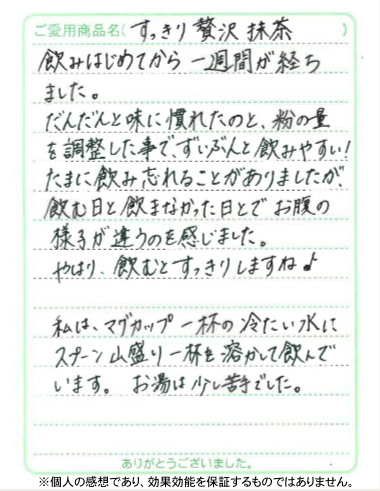 ご愛用商品名(すっきり贅沢抹茶)
飲みはじめてから一週間が経ち
ました。
だんだんと味に慣れたのと、粉の量
を調整した事で、ずいぶんと飲みやすい!
たまに飲み忘れることがありましたが、
飲む日と飲まなかった日とでお腹の
様子が違うのを感じました。
やはり、飲むとすっきりしますね♪
私は、マグカップ一杯の冷たい水に
スプーン山盛り一杯を溶かして飲んで
います。 お湯は少し苦手でした。
ありがとうございました。
※個人の感想であり、効果効能を保証するものではありません。